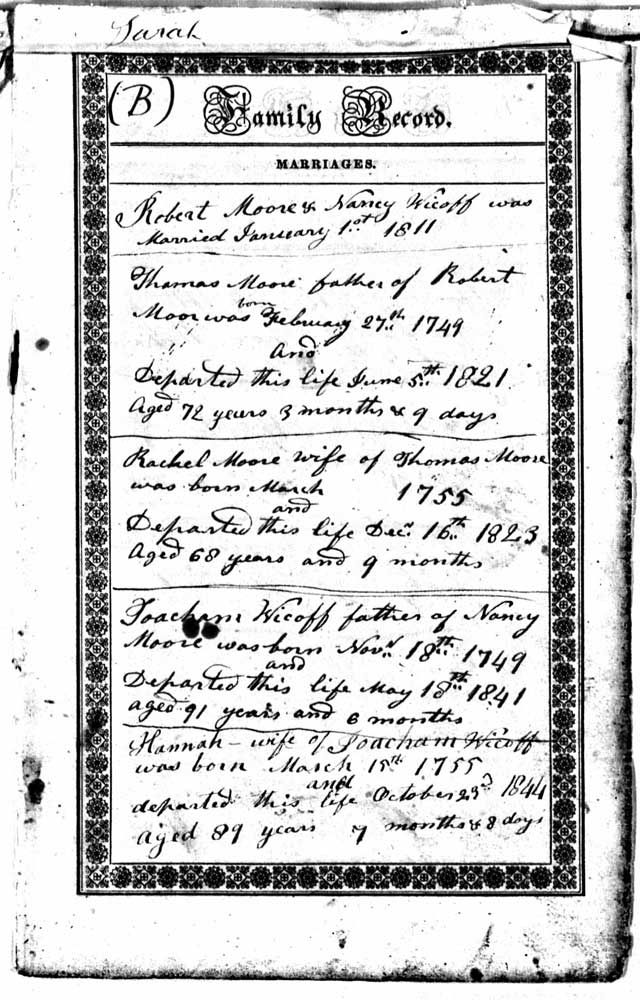 Sarah
(B)
Family Record.
MARRIAGES.
Robert Moore & Nancy Wicoff was
Married January 1st 1811
Thomas Moore father of Robert
Moor was born February 27th 1749
And
Departed this life June 5th 1821
Aged 72 years 3 months & 9 days
Rachel Moore wife of Thomas Moore
was born March 1755
and
Departed this life Dec. 16th 1823
Aged 68 years and 9 months
Joacham Wicoff father of Nancy
Moore was born Nov. 18th 1749
and
Departed this life May 18th 1841
aged 91 years and 6 months
Hannah - wife of Joacham Wicoff
was born March 15th 1755
and
departed this life October 23d 1844
Aged 89 years 7 months & 8 days